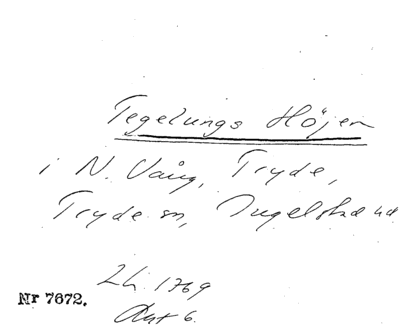 Tegelungs Höjen
i N. Vång, Tryde,
Tryde sn, Ingelstad hd
Lh. 1769
Akt 6.
Nr 7672.